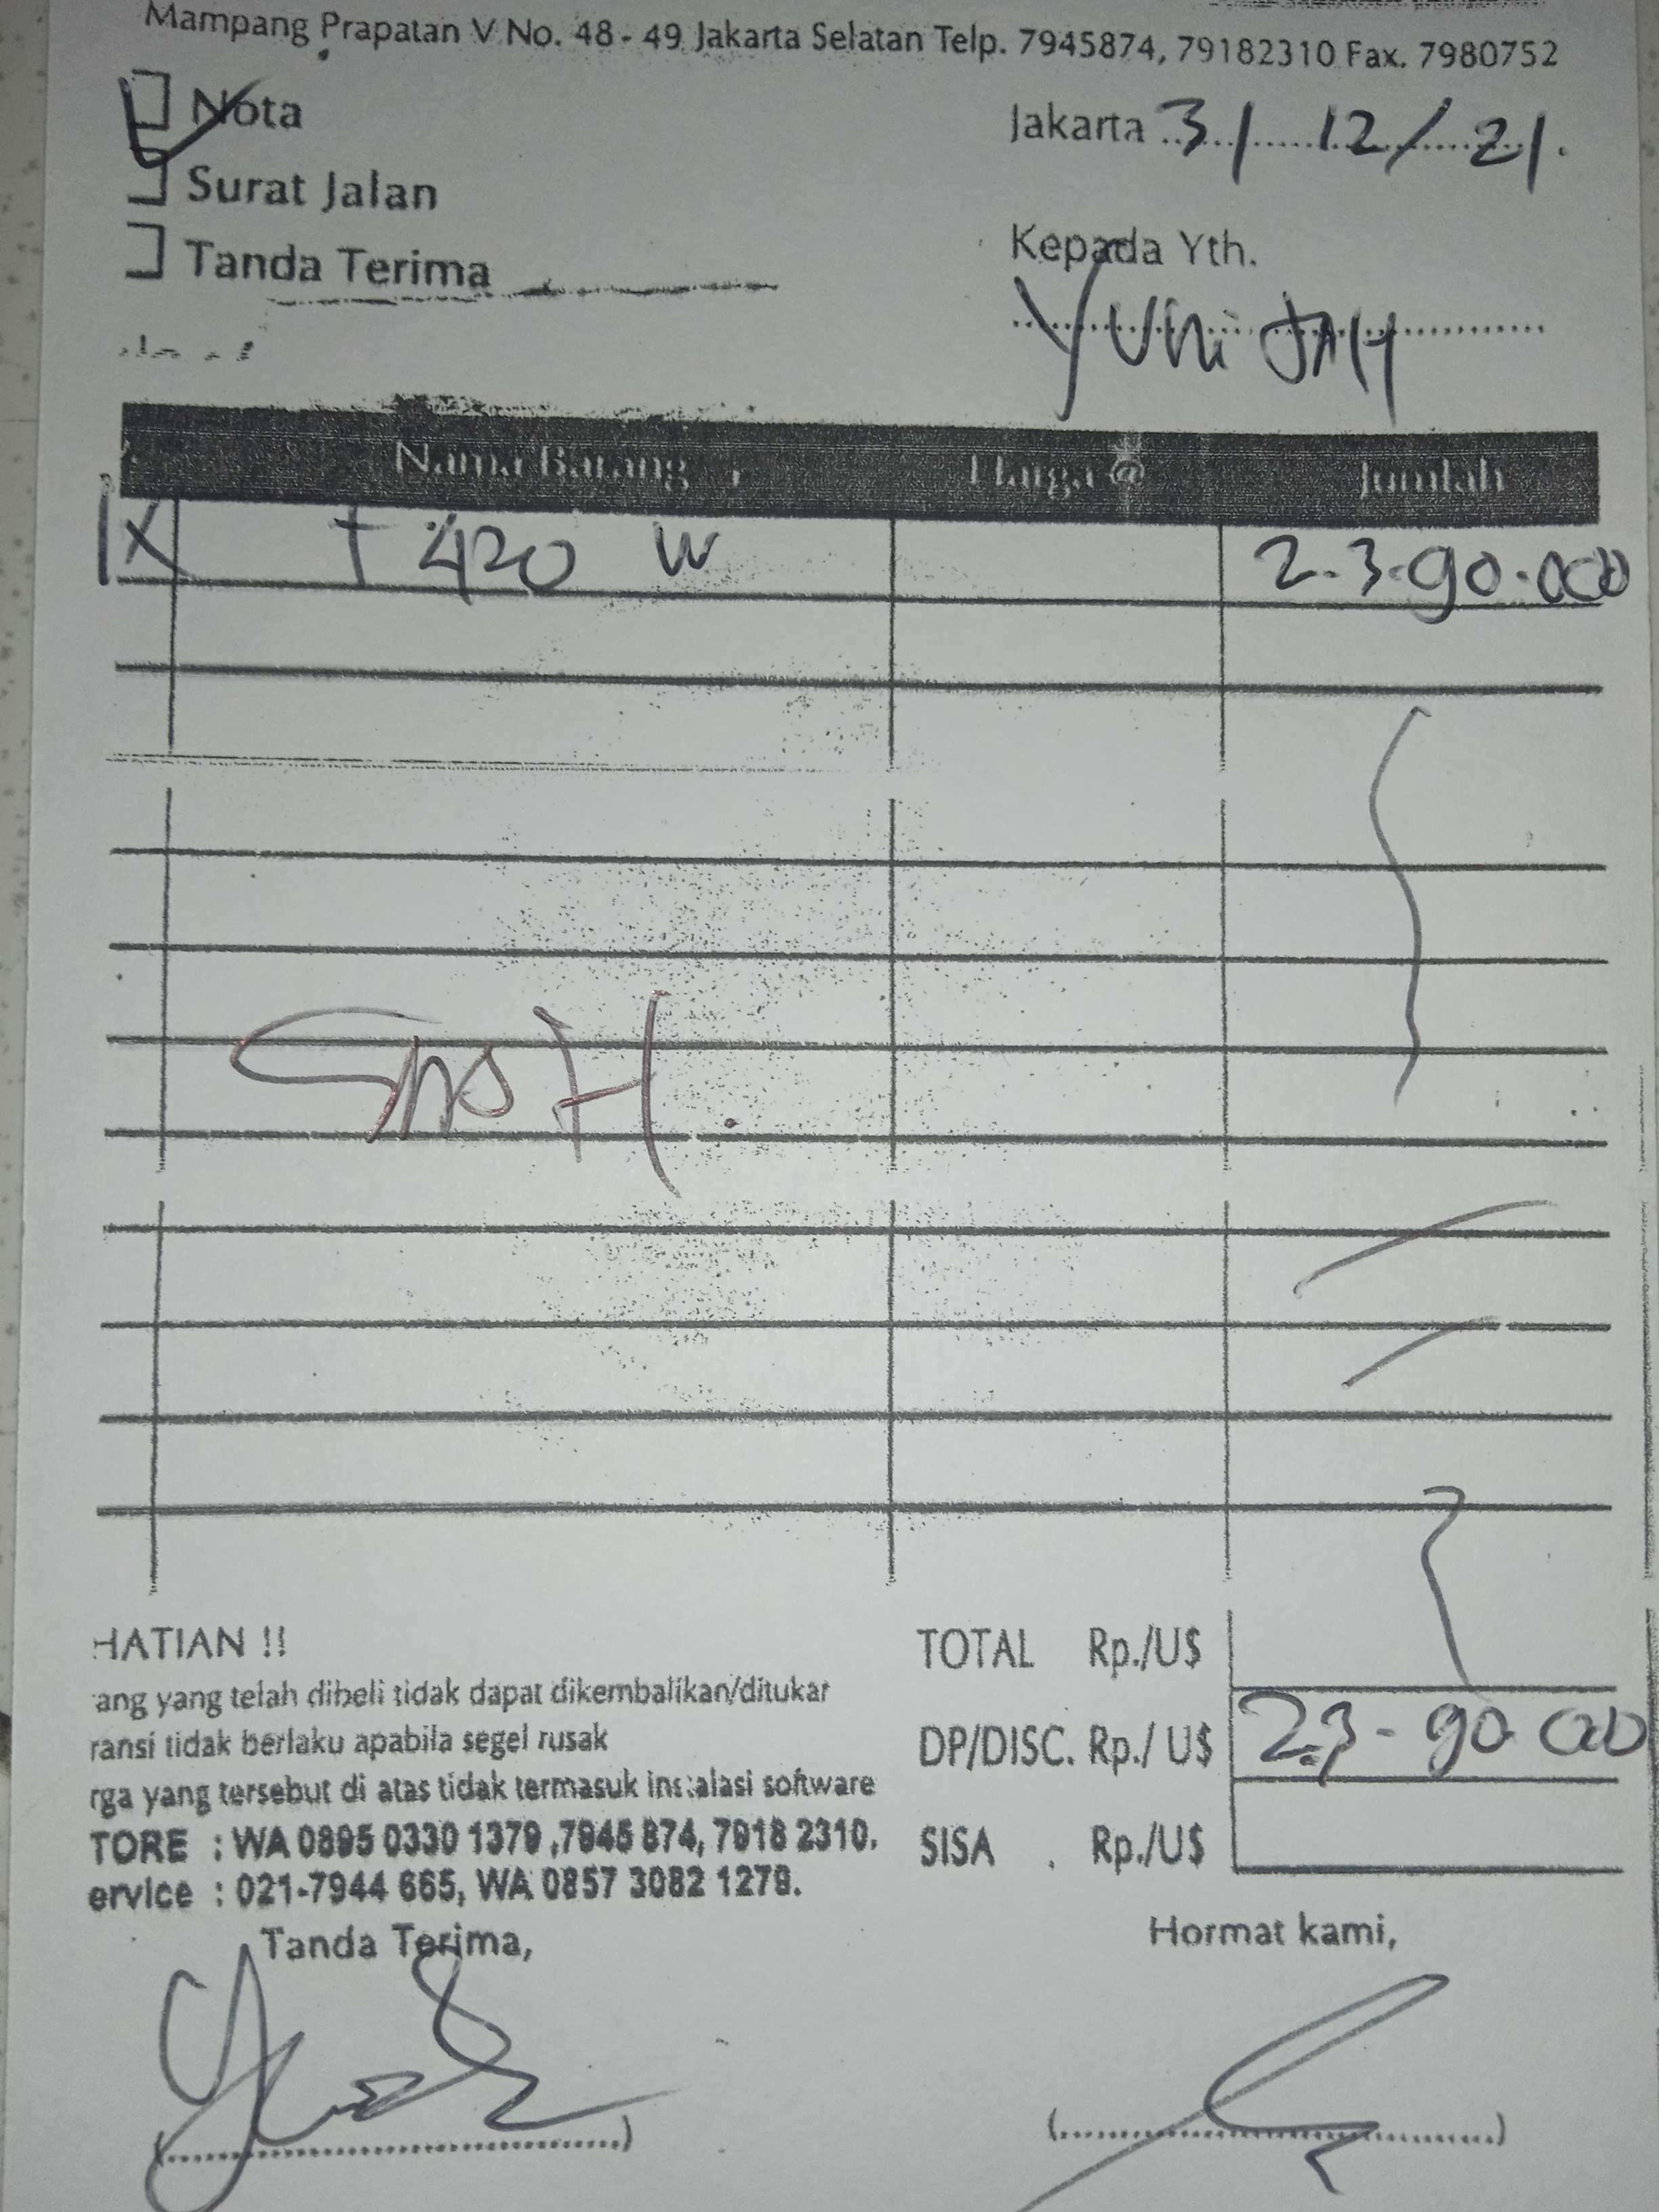 Mampang Prapatan V No. 48 - 49 Jakarta Selatan Telp. 7945874, 79182310 Fax. 7980752
Nota
Jakarta 31/12/21.
Surat Jalan
Kepada Yth.
Tanda Terima
Yuni JAH
Nama Barang Harga @ Jumlah
1X T 420 W 2.3.90.000
HATIAN !!
TOTAL Rp./U$
ang yang telah dibeli tidak dapat dikembalikan/ditukar
ransi tidak berlaku apabila segel rusak
DP/DISC. Rp./ U$ 2.3-90.000
rga yang tersebut di atas tidak termasuk instalasi software
TORE : WA 0895 0330 1379 ,7945 874, 7918 2310.
SISA Rp./U$
ervice : 021-7944 665, WA 0857 3082 1279.
Tanda Terima,
Hormat kami,